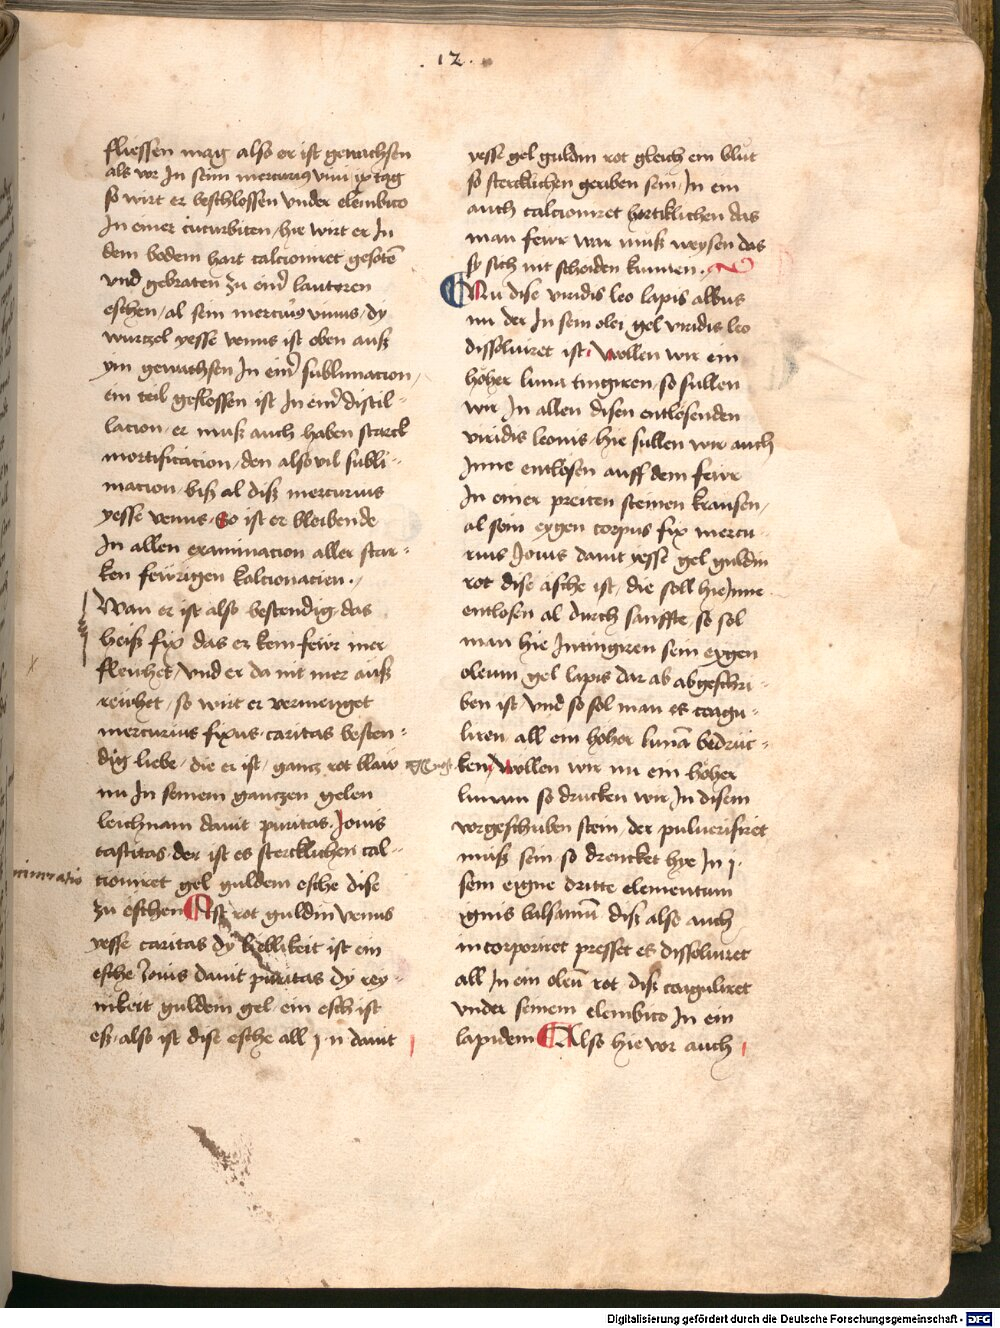 12.
fliessen mag also er ist gewachsen
als vor In seim mercurius vivi ix tag
so wirt er beschlossen vnder elembico
In einer cucurbiten / hie wirt er In
dem bodem hart calcioniret gesotē
vnd gebraten zu eim̄ lauteren
eschen / al sein mercuriꝰ vivus / dy
wurtzel yesse venus ist oben auß
ym gewachsen In eim̄ sublimacion /
ein teil geflossen ist In eim̄ distil-
lacion / er muß auch haben starck
mortificacion / den also vil subli-
macion / biß al diß mercurius
yesse venus. So ist er bleibende
In allen examinacion aller star-
ken feẅrigen kalcionacien.
Wan er ist also bestendig das
heiß fix das er kein feẅr mer
fleuhet / vnd er da nit mer auß
reuhet / so wirt er vermenget
mercurius fixus caritas besten-
dig liebe / die er ist / gantz rot blaw
nu In seinem gantzen gelen
leichnam davit puritas. Jovis
castitas der ist es stercklichen cal-
cioniret gel guldem esche dise
zu eschen Ist rot guldin venus
yesse caritas dy lieblikeit ist ein
esche Jovis davit puritas dy rey-
nikeit guldem gel ein esch ist
eß / also ist dise esche all J n davit
yesse gel guldin rot gleich ein blut
so stercklichen geriben sein / In ein
auch calcioniret hertiklichen das
man feẅr war muß weysen das
sy sich nit scheiden kunnen.
Nu dise viridis leo lapis albus
nu der In sein olei gel viridis leo
dissolviret ist. wollen wir ein
hoher luna tingiren / so sullen
wir In allen disen entlosenden
viridis leonis / hie sullen wir auch
Inne entlosen auff dem feẅr
In einer preiten steinen krausen /
al sein eygen corpus fix mercu-
rius Jovis davit yesse gel guldin
rot dise asche ist / die soll hie Inne
entlosen al durch sanffte / so sol
man hie Intingiren sein eygen
oleum gel lapis dar ab abgeschri-
ben ist vnd so sol man es coagu-
liren / all ein hoher lunā bedrüc-
ken / wollen wir nu ein hoher
lunam so drucken wir In disem
vorgeschriben stein / der pulverisiret
muß sein / so drencket hye In j.
sein eigne dritte elementum
ignis balsamū diß also auch
incorporiret presset es dissolviret
all In ein oleū rot diß coaguliret
vnder seinem elembico In ein
lapidem Also hie vor auch
Digitalisierung gefördert durch die Deutsche Forschungsgemeinschaft - DFG